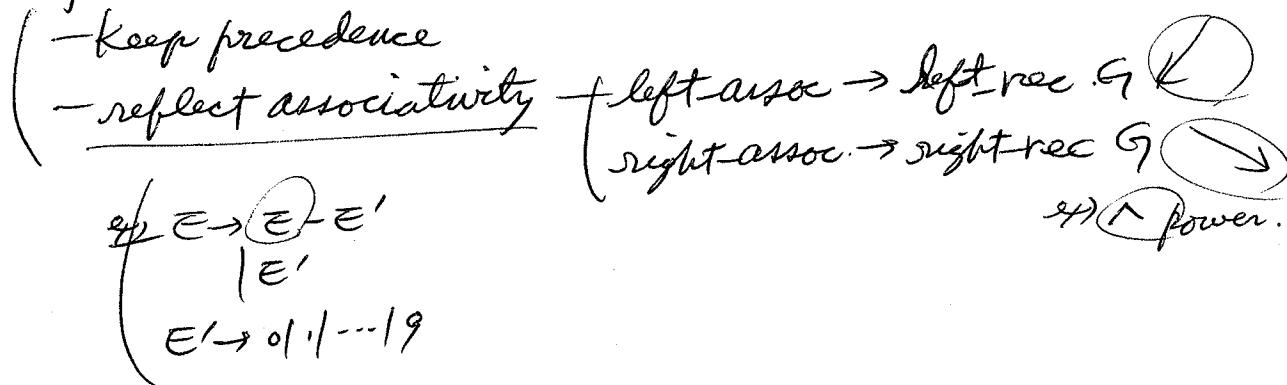 - Keep precedence
- reflect associativity
left-assoc → left-rec. G
right-assoc. → right-rec G
ex) ^ power.
ex) E → E - E'
| E'
E' → 0|1|---|9